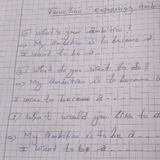 Function expressing ambi
① What's your ambition?
⇒ My ambition is to become a
I want to be a.
② What do you want to do?
⇒ My ambition is to become a
I want to become a
③ What would you like to d
⇒ My ambition is to be a
I want to be a